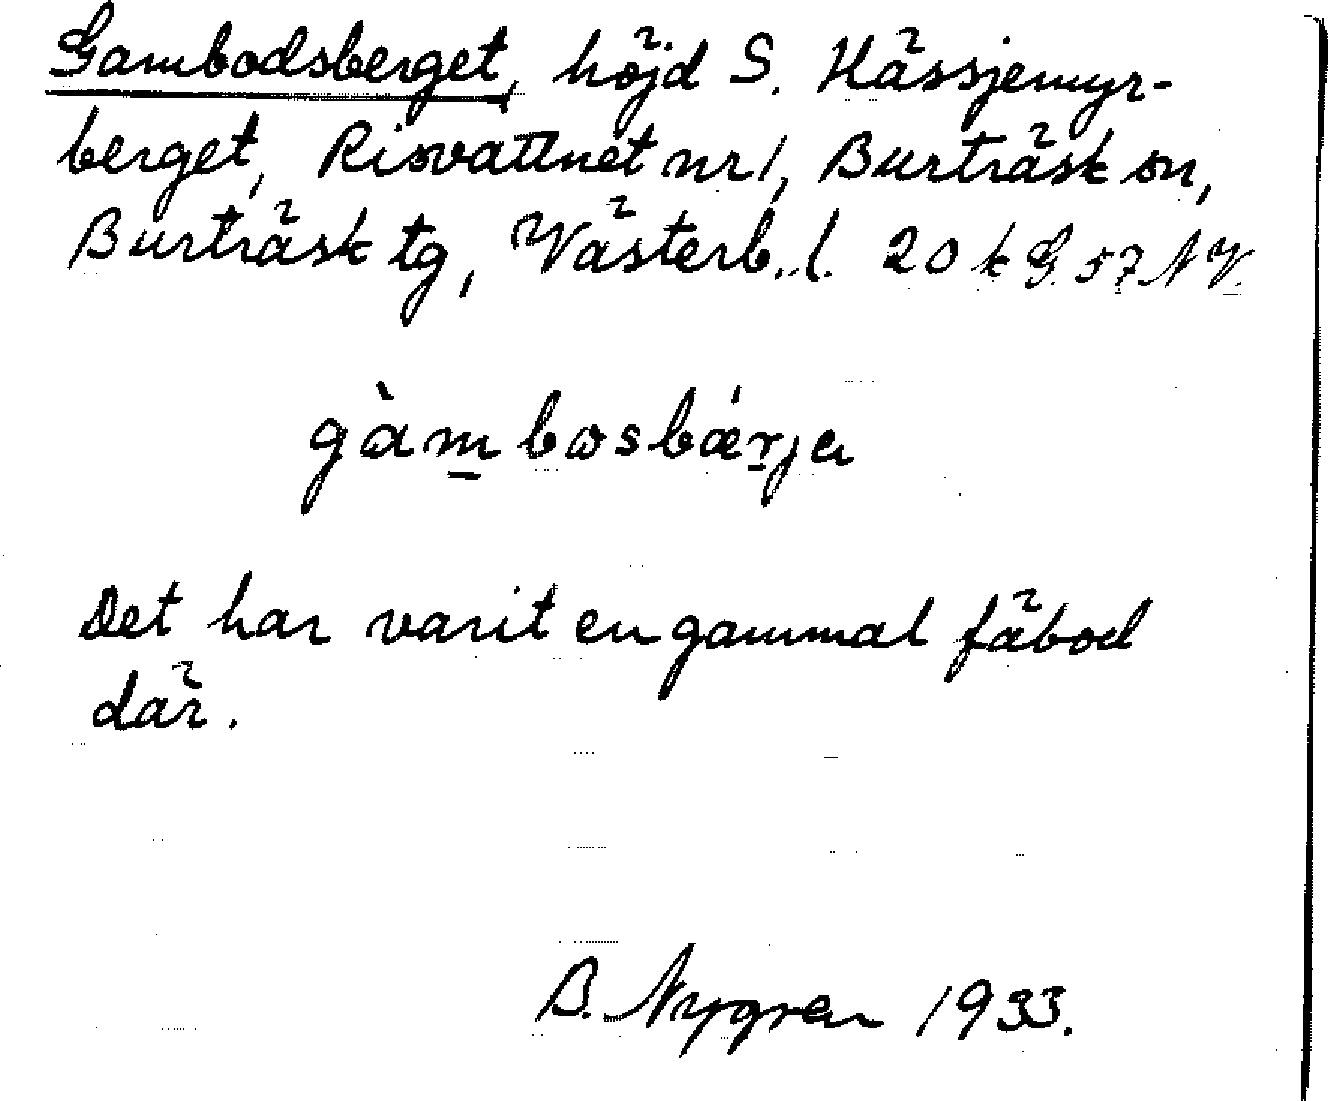 Gambodsberget, höjd S. Hässjemyr-
berget, Risvattnet nr 1, Burträsk sn,
Burträsk tg, Västerb. l. 20 k G. 57 NV.
gàm̱bωsbǽṟja
Det har varit en gammal fäbod
där.
B. Nygren 1933.